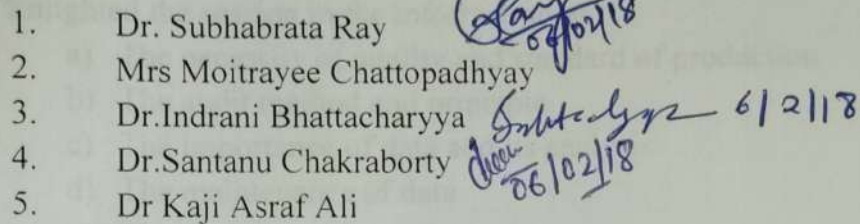 1. Dr. Subhabrata Ray 06/02/18
2. Mrs Moitrayee Chattopadhyay
3. Dr.Indrani Bhattacharyya 6/2/18
4. Dr.Santanu Chakraborty 06/02/18
5. Dr Kaji Asraf Ali